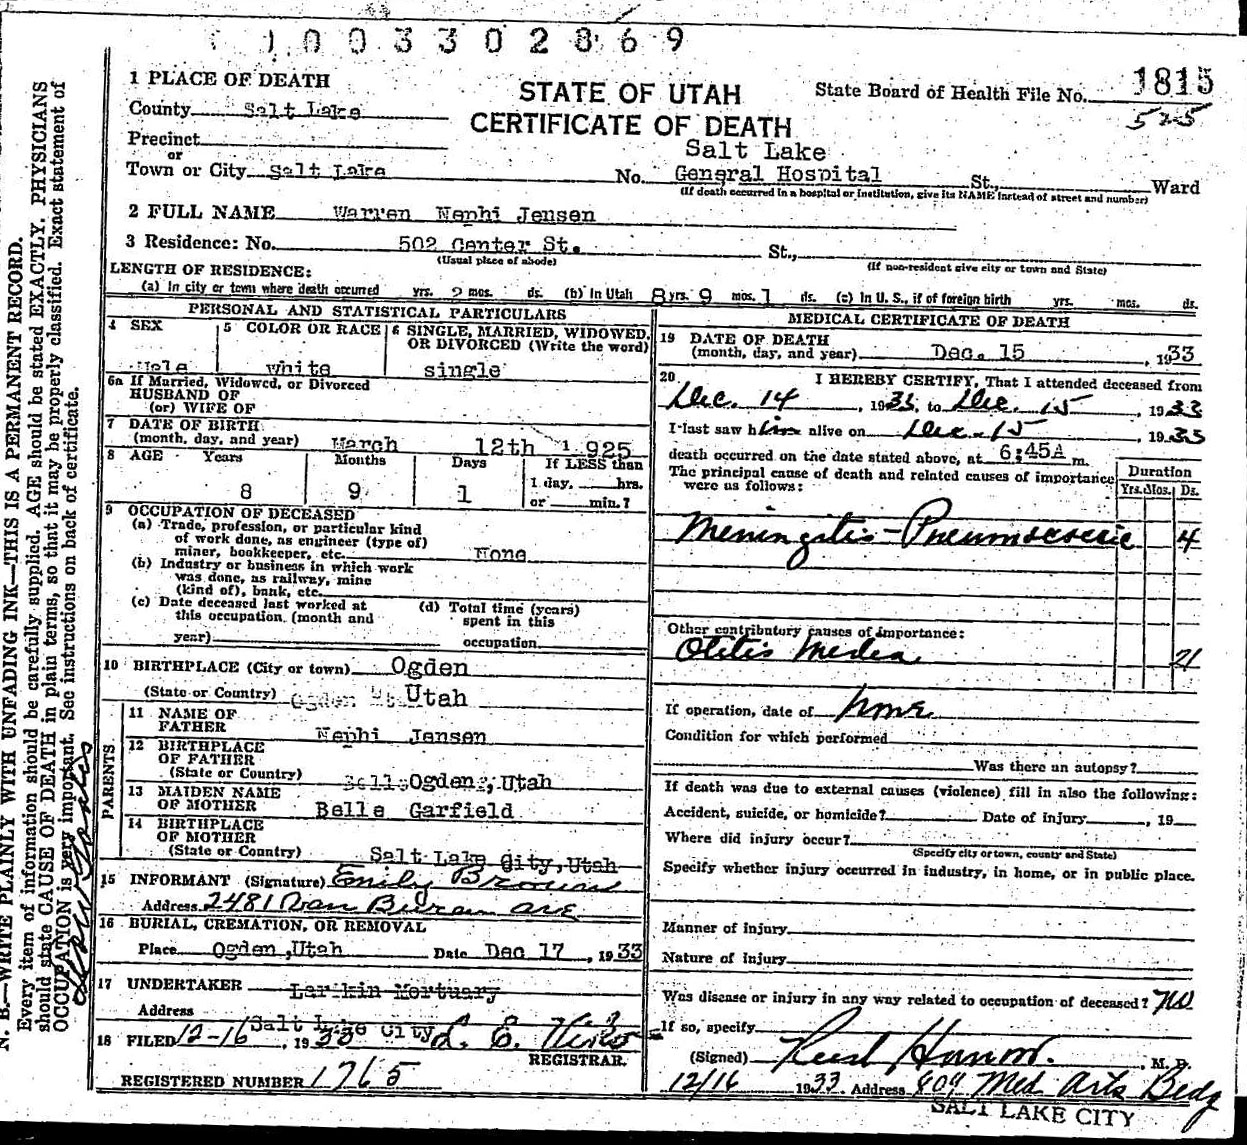 1003302869
1 PLACE OF DEATH
STATE OF UTAH
CERTIFICATE OF DEATH
State Board of Health File No. 1815
525
County Salt Lake
Precinct
or
Town or City Salt Lake
Salt Lake
No. General Hospital St., Ward
(If death occurred in a hospital or institution, give its NAME instead of street and number)
2 FULL NAME Warren Nephi Jensen
3 Residence: No. 502 Center St. St.,
(Usual place of abode) (If non-resident give city or town and State)
LENGTH OF RESIDENCE:
(a) In city or town where death occurred yrs. 2 mos. ds. (b) In Utah 8 yrs. 9 mos. 1 ds. (c) In U. S., if of foreign birth yrs. mos. ds.
PERSONAL AND STATISTICAL PARTICULARS
4 SEX
Male
5 COLOR OR RACE
white
6 SINGLE, MARRIED, WIDOWED,
OR DIVORCED (Write the word)
single
6a If Married, Widowed, or Divorced
HUSBAND OF
(or) WIFE OF
7 DATE OF BIRTH
(month, day, and year) March 12th 1925
8 AGE Years Months Days If LESS than
1 day, hrs.
8 9 1 or min.?
9 OCCUPATION OF DECEASED
(a) Trade, profession, or particular kind
of work done, as engineer (type of)
miner, bookkeeper, etc. None
(b) Industry or business in which work
was done, as railway, mine
(kind of), bank, etc.
(c) Date deceased last worked at
this occupation. (month and
year)
(d) Total time (years)
spent in this
occupation
10 BIRTHPLACE (City or town) Ogden
(State or Country) Utah
PARENTS
11 NAME OF
FATHER Nephi Jensen
12 BIRTHPLACE
OF FATHER
(State or Country) Ogden, Utah
13 MAIDEN NAME
OF MOTHER Belle Garfield
14 BIRTHPLACE
OF MOTHER
(State or Country) Salt Lake City, Utah
15 INFORMANT (Signature) Emily Brown
Address 2481 Van Buren ave
16 BURIAL, CREMATION, OR REMOVAL
Place Ogden, Utah Date Dec 17, 1933
17 UNDERTAKER Larkin Mortuary
Address Salt Lake City
18 FILED 12-16, 1933 L. E.
REGISTRAR.
REGISTERED NUMBER 1765
MEDICAL CERTIFICATE OF DEATH
19 DATE OF DEATH
(month, day, and year) Dec. 15, 1933
20 I HEREBY CERTIFY, That I attended deceased from
Dec. 14, 1933, to Dec. 15, 1933
I last saw him alive on Dec. 15, 1933
death occurred on the date stated above, at 6:45A m.
The principal cause of death and related causes of importance
were as follows:
Duration
Yrs. Mos. Ds.
Meningitis - Pneumococcic 4
Other contributory causes of importance:
Otitis Media 21
If operation, date of None
Condition for which performed
Was there an autopsy?
If death was due to external causes (violence) fill in also the following:
Accident, suicide, or homicide? Date of injury, 19
Where did injury occur?
(Specify city or town, county and State)
Specify whether injury occurred in industry, in home, or in public place.
Manner of injury
Nature of injury
Was disease or injury in any way related to occupation of deceased? No
If so, specify
(Signed) M. D.
12/16 1933 Address 609 Med Arts Bldg
SALT LAKE CITY
N. B.—WRITE PLAINLY WITH UNFADING INK—THIS IS A PERMANENT RECORD.
Every item of information should be carefully supplied. AGE should be stated EXACTLY. PHYSICIANS
should state CAUSE OF DEATH in plain terms, so that it may be properly classified. Exact statement of
OCCUPATION is very important. See instructions on back of certificate.